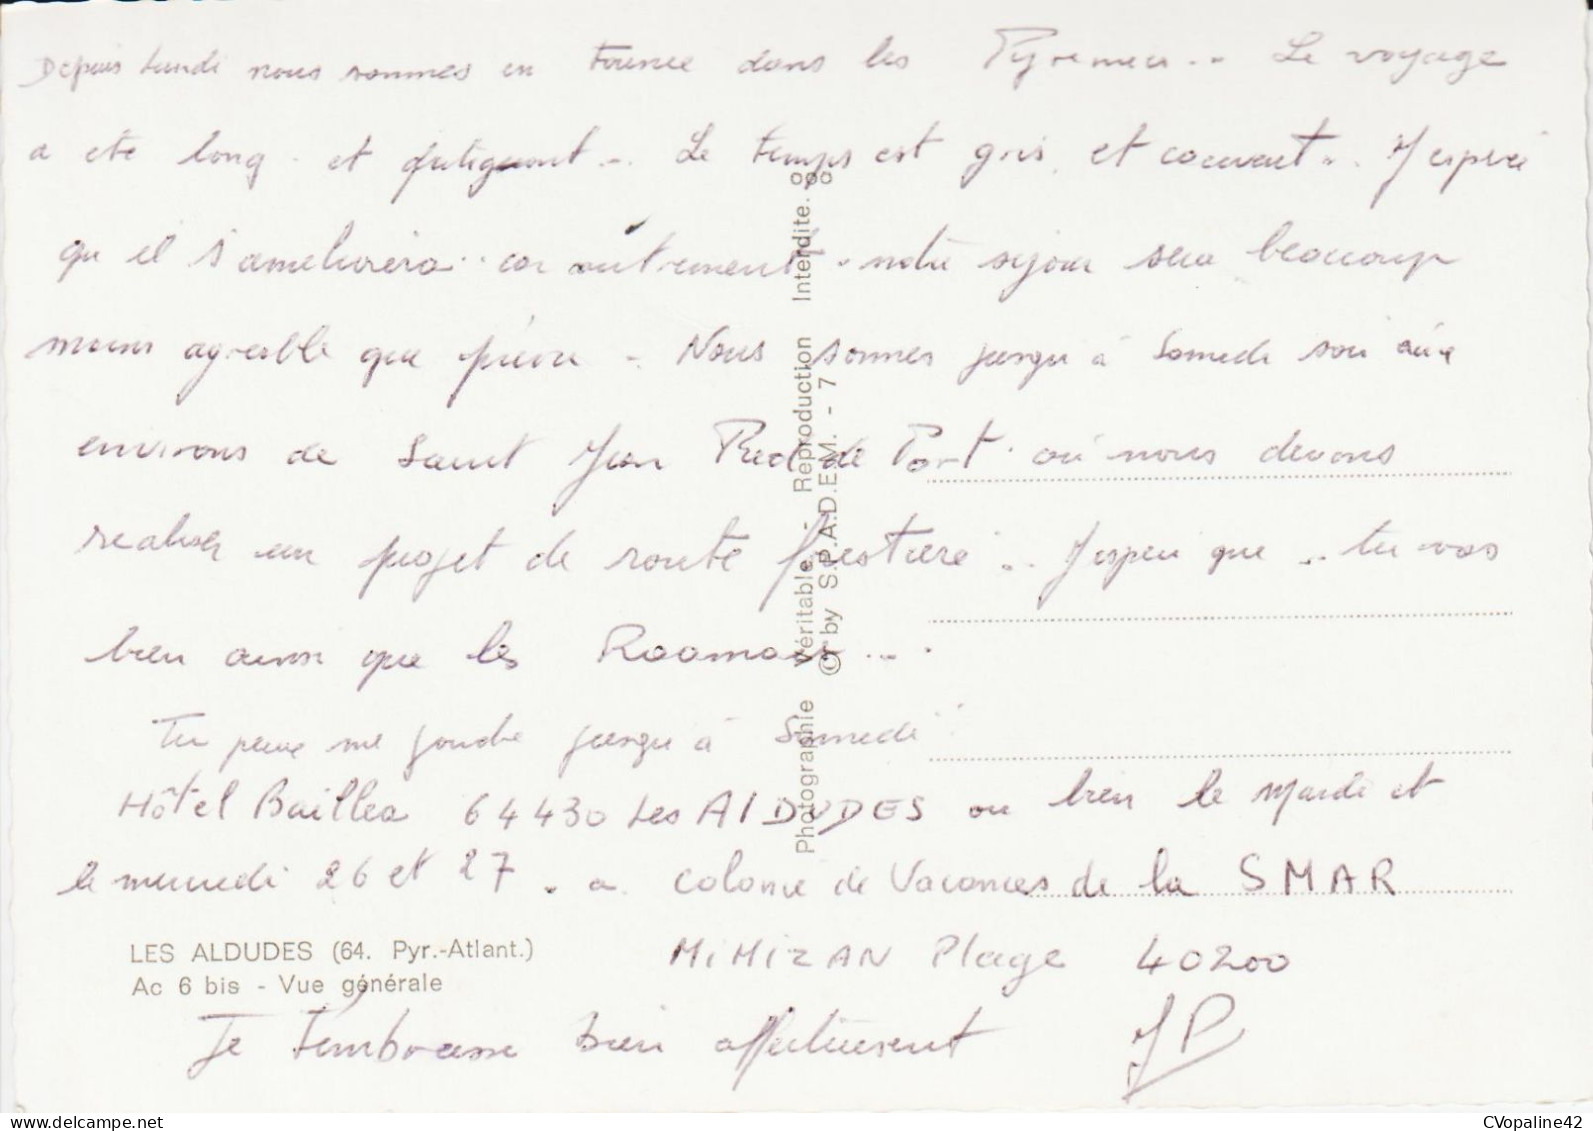 Depuis Lundi nous sommes en France dans les Pyrenees.. Le voyage
a ete long. et fatiguant... Le temps est gris. et couvert... J'espere
qu'il s'ameliorera.. car autrement. notre sejour sera beaucoup
moins agreable que prevu. Nous sommes jusqu'à Samedi soir aux
environs de Saint Jean Pied de Port. où nous devons
realiser un projet de route forestiere... J'espere que .. tu vas
bien ainsi que les
Tu peux me joindre jusqu'à Samedi:
Hôtel Baillea 64430 Les AlDUDES ou bien le Mardi et
le mercredi 26 et 27. a colonie de Vacances de la SMAR
MiMiZAN Plage 40200
LES ALDUDES (64. Pyr.-Atlant.)
Ac 6 bis - Vue générale
Je t'embrasse bien affectueusement JP
Photographie Véritable. - Reproduction Interdite.
© by S.P.A.D.E.M. - 7
CVopaline42